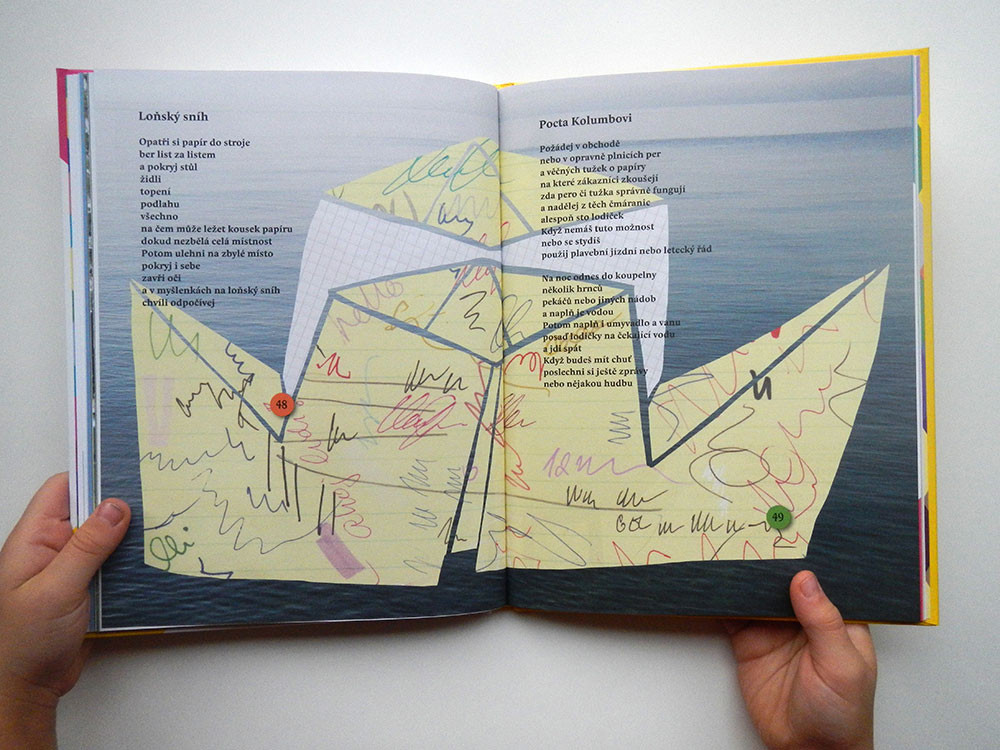 Loňský sníh
Opatři si papír do stroje
ber list za listem
a pokryj stůl
židli
topení
podlahu
všechno
na čem může ležet kousek papíru
dokud nezbělá celá místnost
Potom ulehni na zbylé místo
pokryj i sebe
zavři oči
a v myšlenkách na loňský sníh
chvíli odpočívej
48
Pocta Kolumbovi
Požádej v obchodě
nebo v opravně plnicích per
a věčných tužek o papíry
na které zákazníci zkoušejí
zda pero či tužka správně fungují
a nadělej z těch čmáranic
alespoň sto lodiček
Když nemáš tuto možnost
nebo se stydíš
použij plavební jízdní nebo letecký řád
Na noc odnes do koupelny
několik hrnců
pekáčů nebo jiných nádob
a naplň je vodou
Potom naplň i umyvadlo a vanu
posaď lodičky na čekající vodu
a jdi spát
Když budeš mít chuť
poslechni si ještě zprávy
nebo nějakou hudbu
49